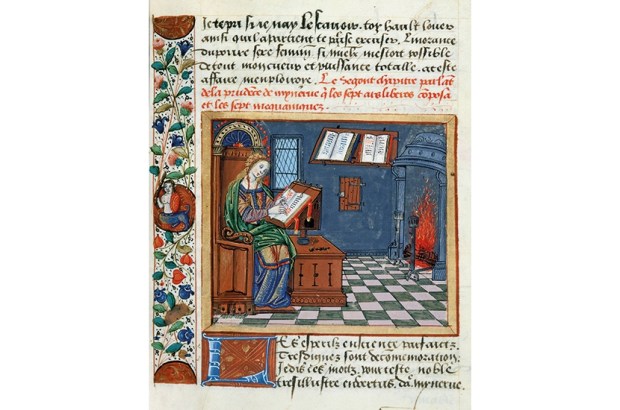 Je te pri si ie nay le scauoir toy hault louer
ainsi quil apartient te plaise excuser Lignorance
du poure sexe feminin si mielx mestoit possible
de tout mon cueur et puissance totalle a ceste
affaire
Le segont chapitre parlãt
de la prudẽce de mynerue q̃ les sept ars liberos cõposa
et les sept mecaniques
Les esperilz en science parfaictz
Tresdignes sont de cõmemoration
Je dis ces motz pour ceste noble
tresillustre mynerue